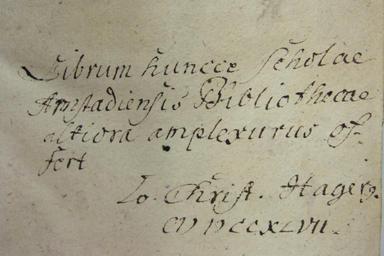 Librum huncce Scholae
Arnstadiensis Bibliothecae
altiora amplexurus of-
fert
Io. Christ. Hager.
MDCCXLVII.